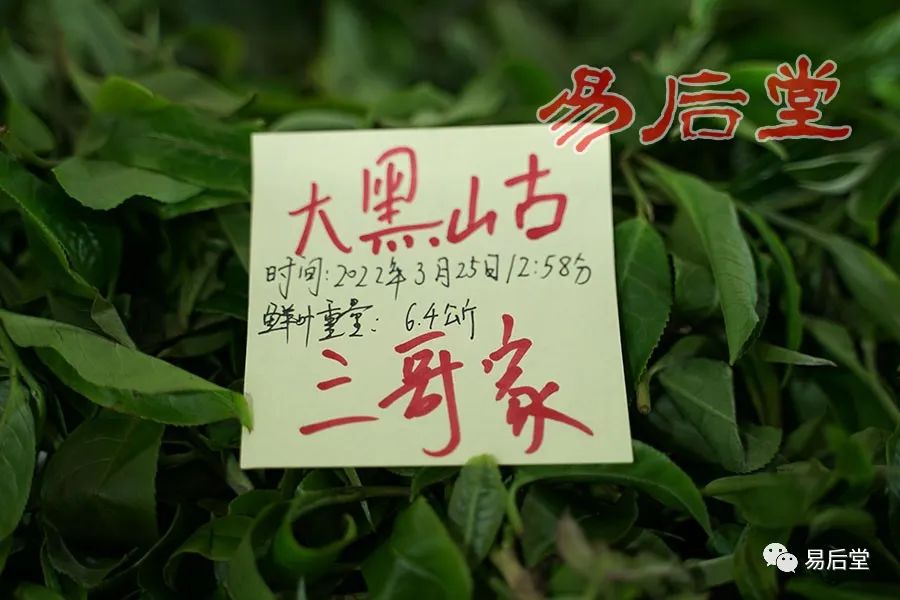 易后堂
大黑山古
时间:2022年3月25日12:58分
鲜叶重量: 6.4公斤
三哥家
易后堂